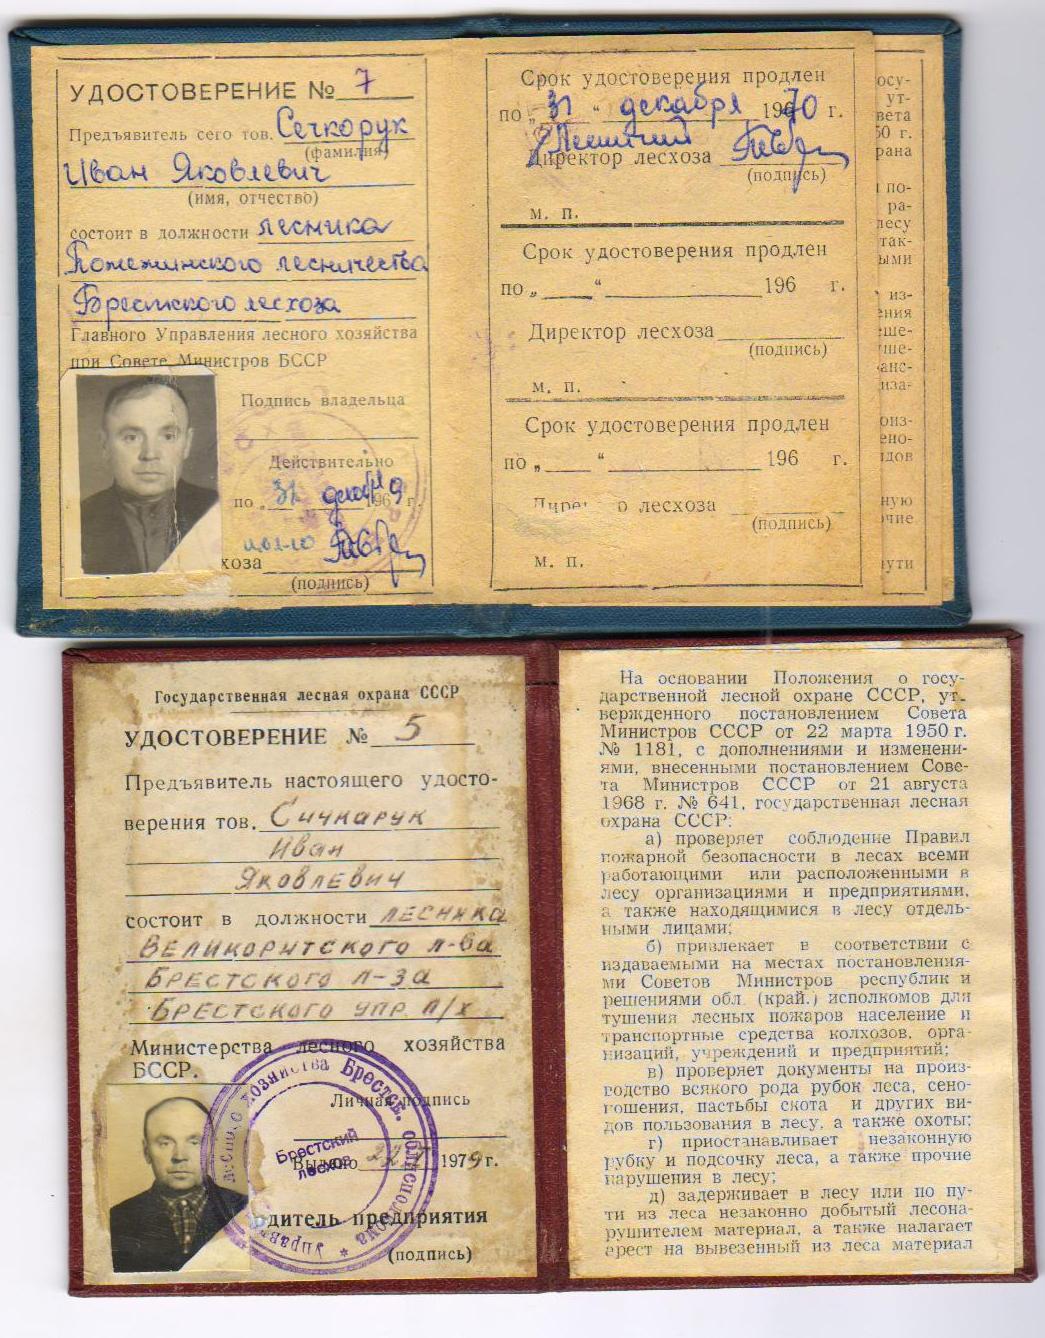 УДОСТОВЕРЕНИЕ № 7
Предъявитель сего тов. Сечкорук
(фамилия)
Иван Яковлевич
(имя, отчество)
состоит в должности лесника
лесничества
Брестского лесхоза
Главного Управления лесного хозяйства
при Совете Министров БССР
Подпись владельца
Действительно
по 31 декабря 1969 г.
хоза
(подпись)
Срок удостоверения продлен
по „31“ декабря 1970 г.
Директор лесхоза
(подпись)
М. П.
Срок удостоверения продлен
по „ “ 196 г.
Директор лесхоза
(подпись)
М. П.
Срок удостоверения продлен
по „ “ 196 г.
о лесхоза
(подпись)
М. П.
осу-
ут-
вета
50 г.
рана
по-
ра-
лесу
так-
ыми
из-
ения
еше-
анс-
иза-
оиз-
ено-
идов
ную
очие
пути
Государственная лесная охрана СССР
УДОСТОВЕРЕНИЕ № 5
Предъявитель настоящего удосто-
верения тов. Сичкарук
Иван
Яковлевич
состоит в должности лесника
Великоритского л-ва
Брестского л-за
Брестского упр. л/х
Министерства лесного хозяйства
БССР.
Личная подпись
Выдано 1979 г.
дитель предприятия
(подпись)
Брестский
лесхоз
лесного хозяйства Брестск. облисполкома * Управ
На основании Положения о госу-
дарственной лесной охране СССР, ут-
вержденного постановлением Совета
Министров СССР от 22 марта 1950 г.
№ 1181, с дополнениями и изменени-
ями, внесенными постановлением Сове-
та Министров СССР от 21 августа
1968 г. № 641, государственная лесная
охрана СССР:
а) проверяет соблюдение Правил
пожарной безопасности в лесах всеми
работающими или расположенными в
лесу организациями и предприятиями,
а также находящимися в лесу отдель-
ными лицами;
б) привлекает в соответствии с
издаваемыми на местах постановления-
ми Советов Министров республик и
решениями обл. (край.) исполкомов для
тушения лесных пожаров население и
транспортные средства колхозов, орга-
низаций, учреждений и предприятий;
в) проверяет документы на произ-
водство всякого рода рубок леса, сено-
кошения, пастьбы скота и других ви-
дов пользования в лесу, а также охоты;
г) приостанавливает незаконную
рубку и подсочку леса, а также прочие
нарушения в лесу;
д) задерживает в лесу или по пу-
ти из леса незаконно добытый лесона-
рушителем материал, а также налагает
арест на вывезенный из леса материал